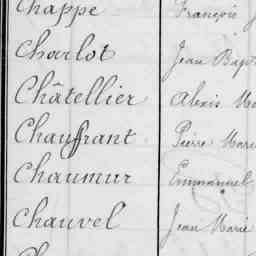 Chappe François
Charlot Jean Bapt
Châtellier Alexis Ma
Chauffrant Pierre Marie
Chaumur Emmanuel
Chauvel Jean Marie